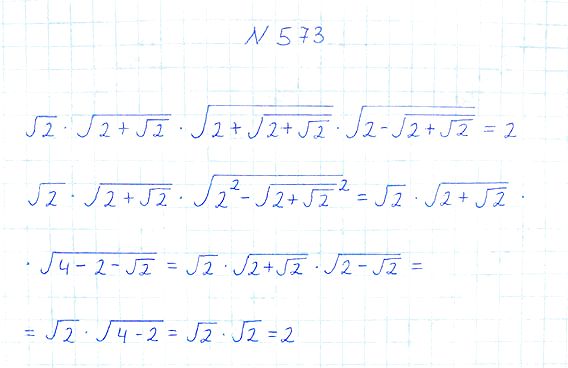 N 573
√2 · √(2 + √2) · √(2 + √(2 + √2)) · √(2 - √(2 + √2)) = 2
√2 · √(2 + √2) · √(2² - √(2 + √2)²) = √2 · √(2 + √2) ·
· √(4 - 2 - √2) = √2 · √(2 + √2) · √(2 - √2) =
= √2 · √(4 - 2) = √2 · √2 = 2